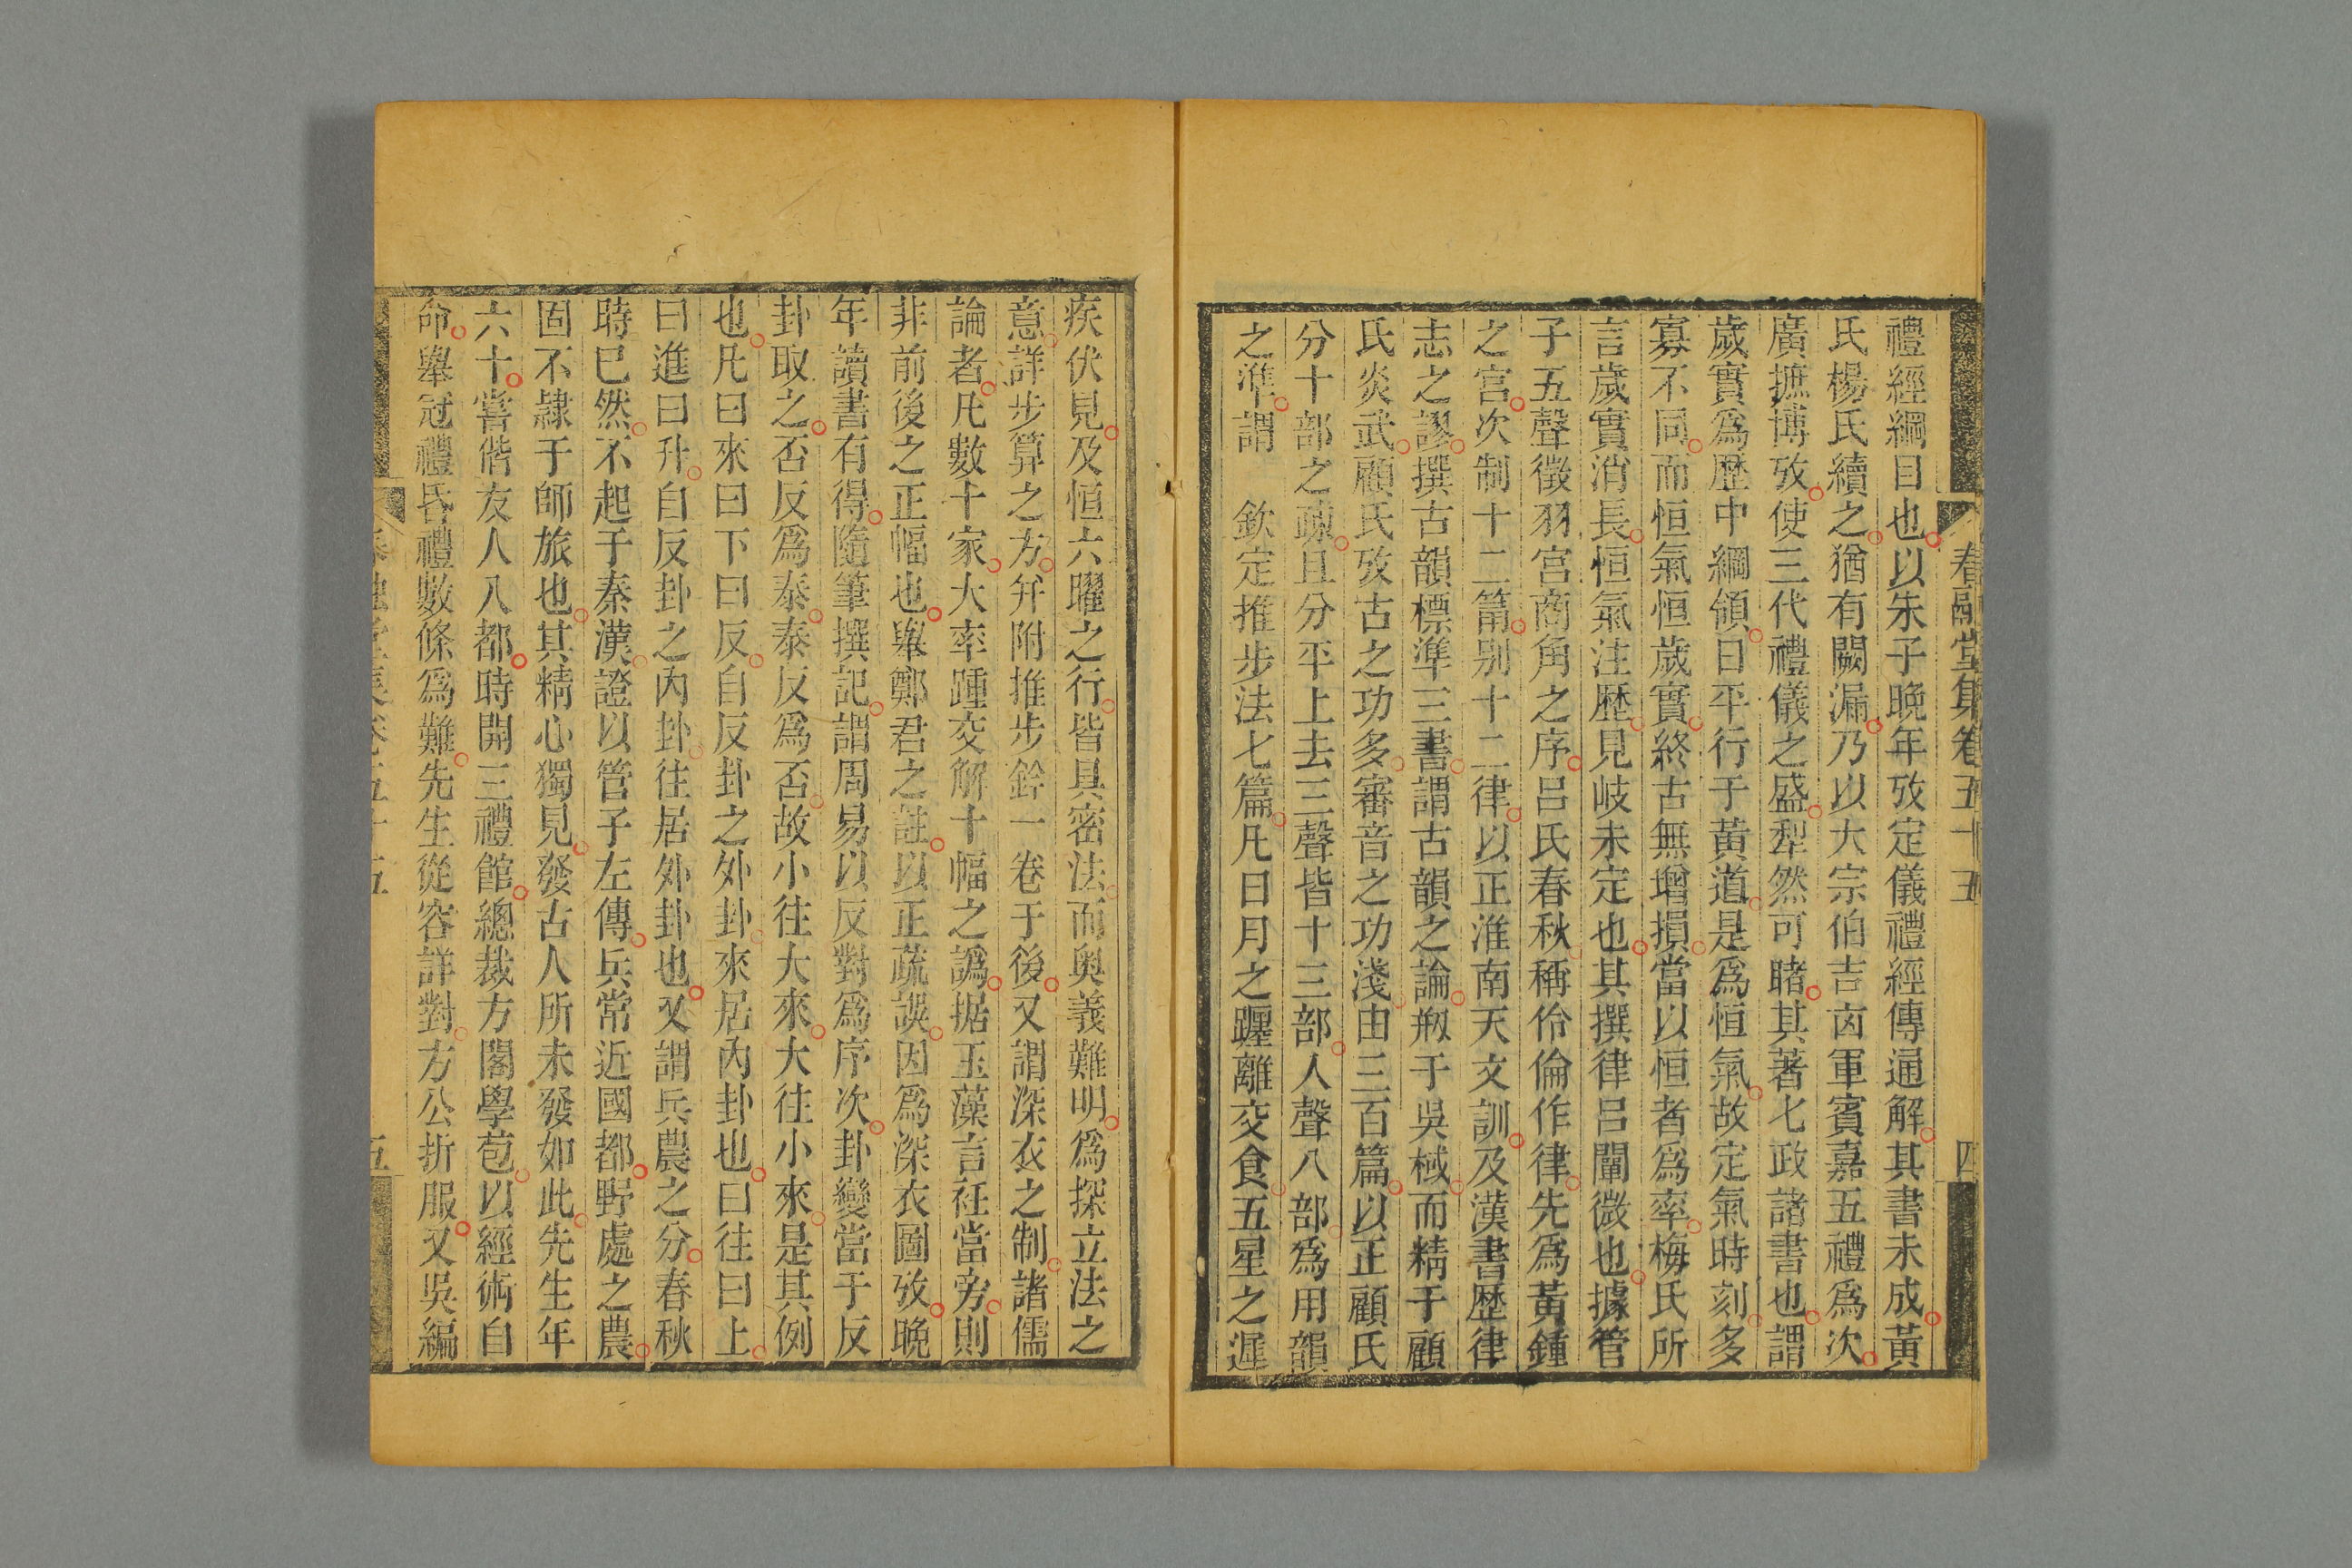 春融堂集卷五十五 四
禮經綱目也以朱子晚年攷定儀禮經傳通解其書未成黃
氏楊氏續之猶有闕漏乃以大宗伯吉凶軍賓嘉五禮爲次
廣摭博攷使三代禮儀之盛犁然可睹其著七政諸書也謂
歲實爲歴中綱領日平行于黃道是爲恒氣故定氣時刻多
寡不同而恒氣恒歲實終古無增損當以恒者爲率梅氏所
言歲實消長恒氣注歴見岐未定也其撰律呂闡微也據管
子五聲徵羽宮商角之序呂氏春秋稱伶倫作律先爲黃鍾
之宮次制十二筩别十二律以正淮南天文訓及漢書歴律
志之謬撰古韻標準三書謂古韻之論剏于吳棫而精于顧
氏炎武顧氏攷古之功多審音之功淺由三百篇以正顧氏
分十部之疎且分平上去三聲皆十三部人聲八部爲用韻
之準謂　欽定推步法七篇凡日月之躔離交食五星之遲
疾伏見及恒六曜之行皆具密法而奥義難明爲探立法之
意詳步算之方并附推步鈐一卷于後又謂深衣之制諸儒
論者凡數十家大率踵交解十幅之譌据玉藻言衽當旁則
非前後之正幅也舉鄭君之註以正疏誤因爲深衣圖攷晚
年讀書有得隨筆撰記謂周易以反對爲序次卦變當于反
卦取之否反爲泰泰反爲否故小往大來大往小來是其例
也凡曰來曰下曰反自反卦之外卦來居內卦也曰往曰上
曰進曰升自反卦之內卦往居外卦也又謂兵農之分春秋
時已然不起于秦漢證以管子左傳兵常近國都野處之農
固不隷于師旅也其精心獨見發古人所未發如此先生年
六十嘗偕友人入都時開三禮館總裁方閣學苞以經術自
命舉冠禮昏禮數條爲難先生從容詳對方公折服又吳編
五十五 五